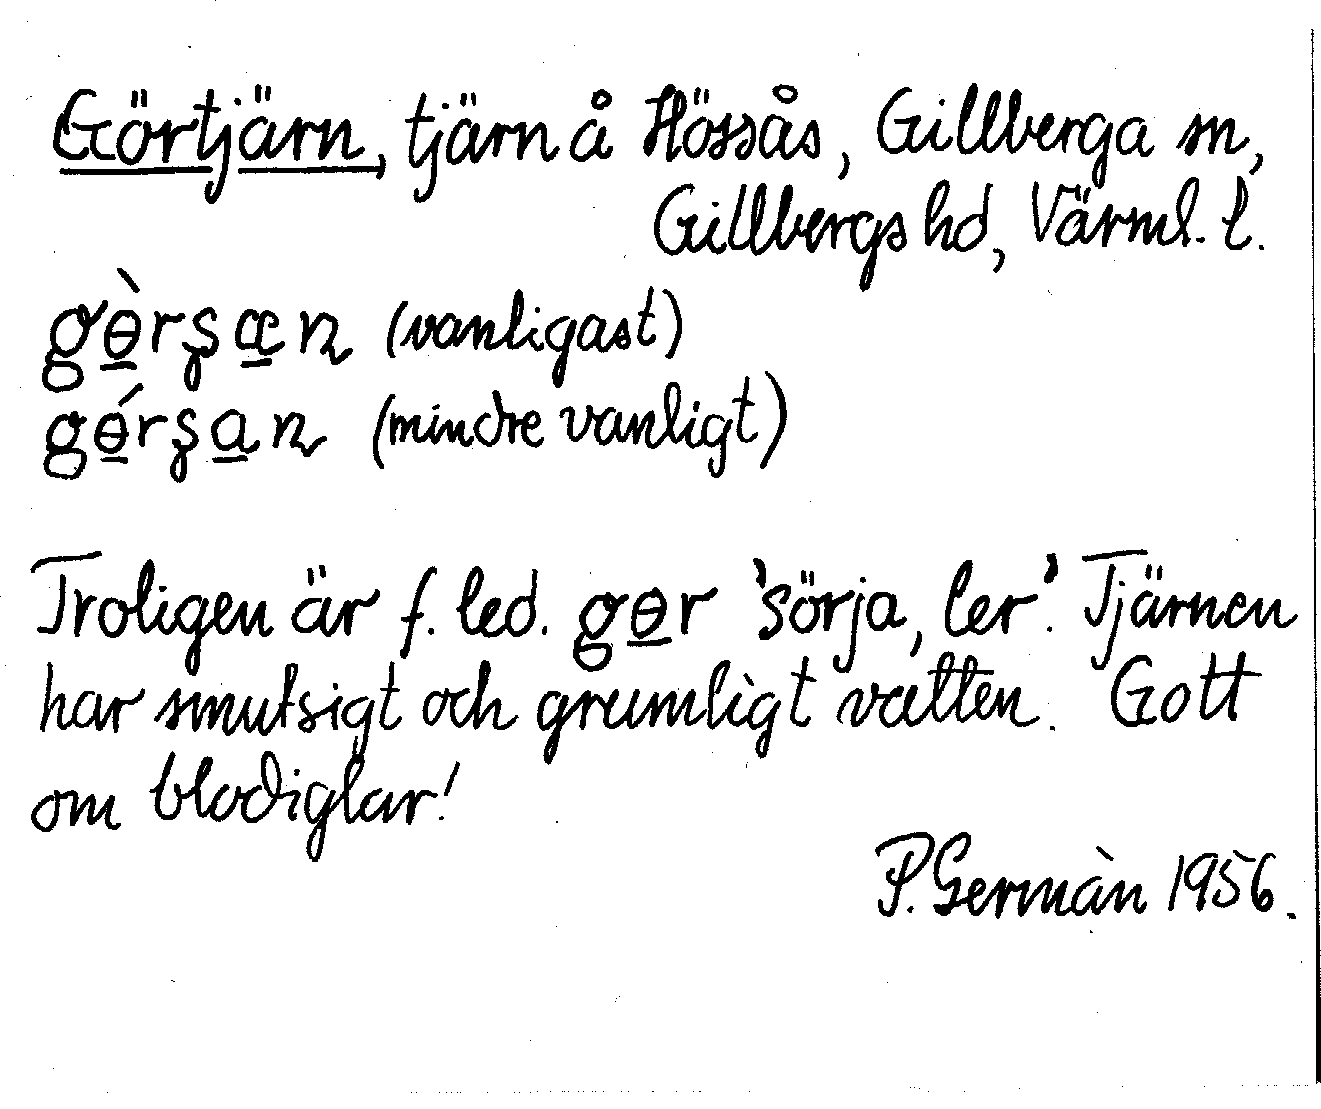 Görtjärn, tjärn å Hössås, Gillberga sn,
Gillbergs hd, Värml. l.
gɵ̀rʂæɳ (vanligast)
gɵ́rʂaɳ (mindre vanligt)
Troligen är f. led. gɵr 'sörja, ler'. Tjärnen
har smutsigt och grumligt vatten. Gott
om blodiglar!
P. Germàn 1956.